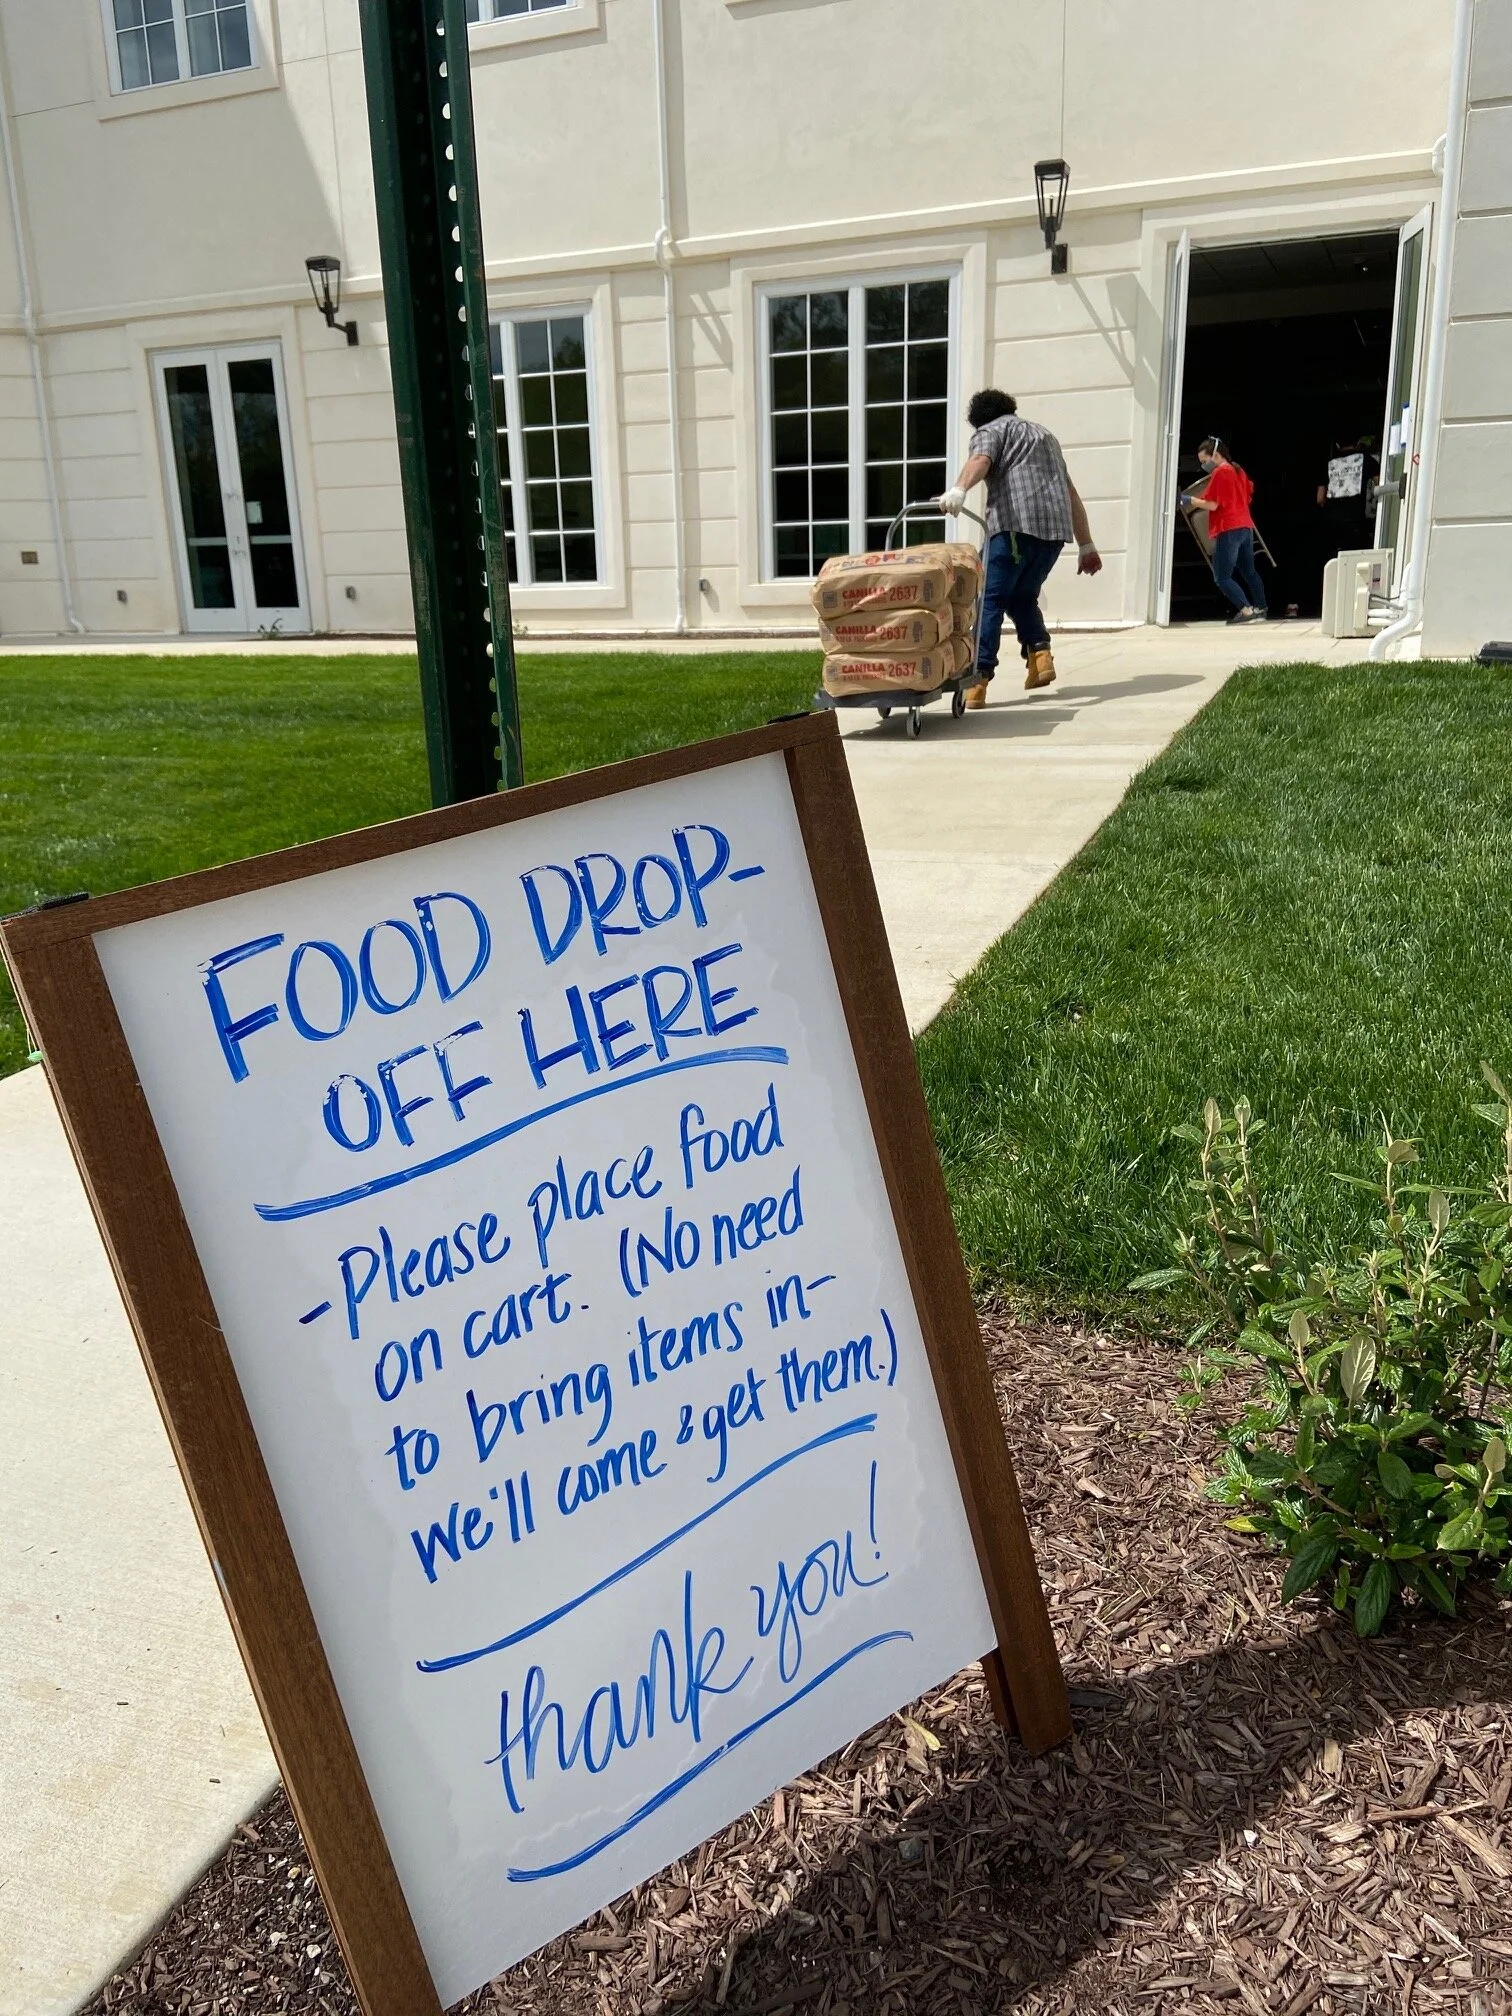 FOOD DROP-
OFF HERE
-Please place food
on cart. (No need
to bring items in-
we'll come & get them.)
thank you!
CANILLA 2637
CANILLA 2637
CANILLA 2637